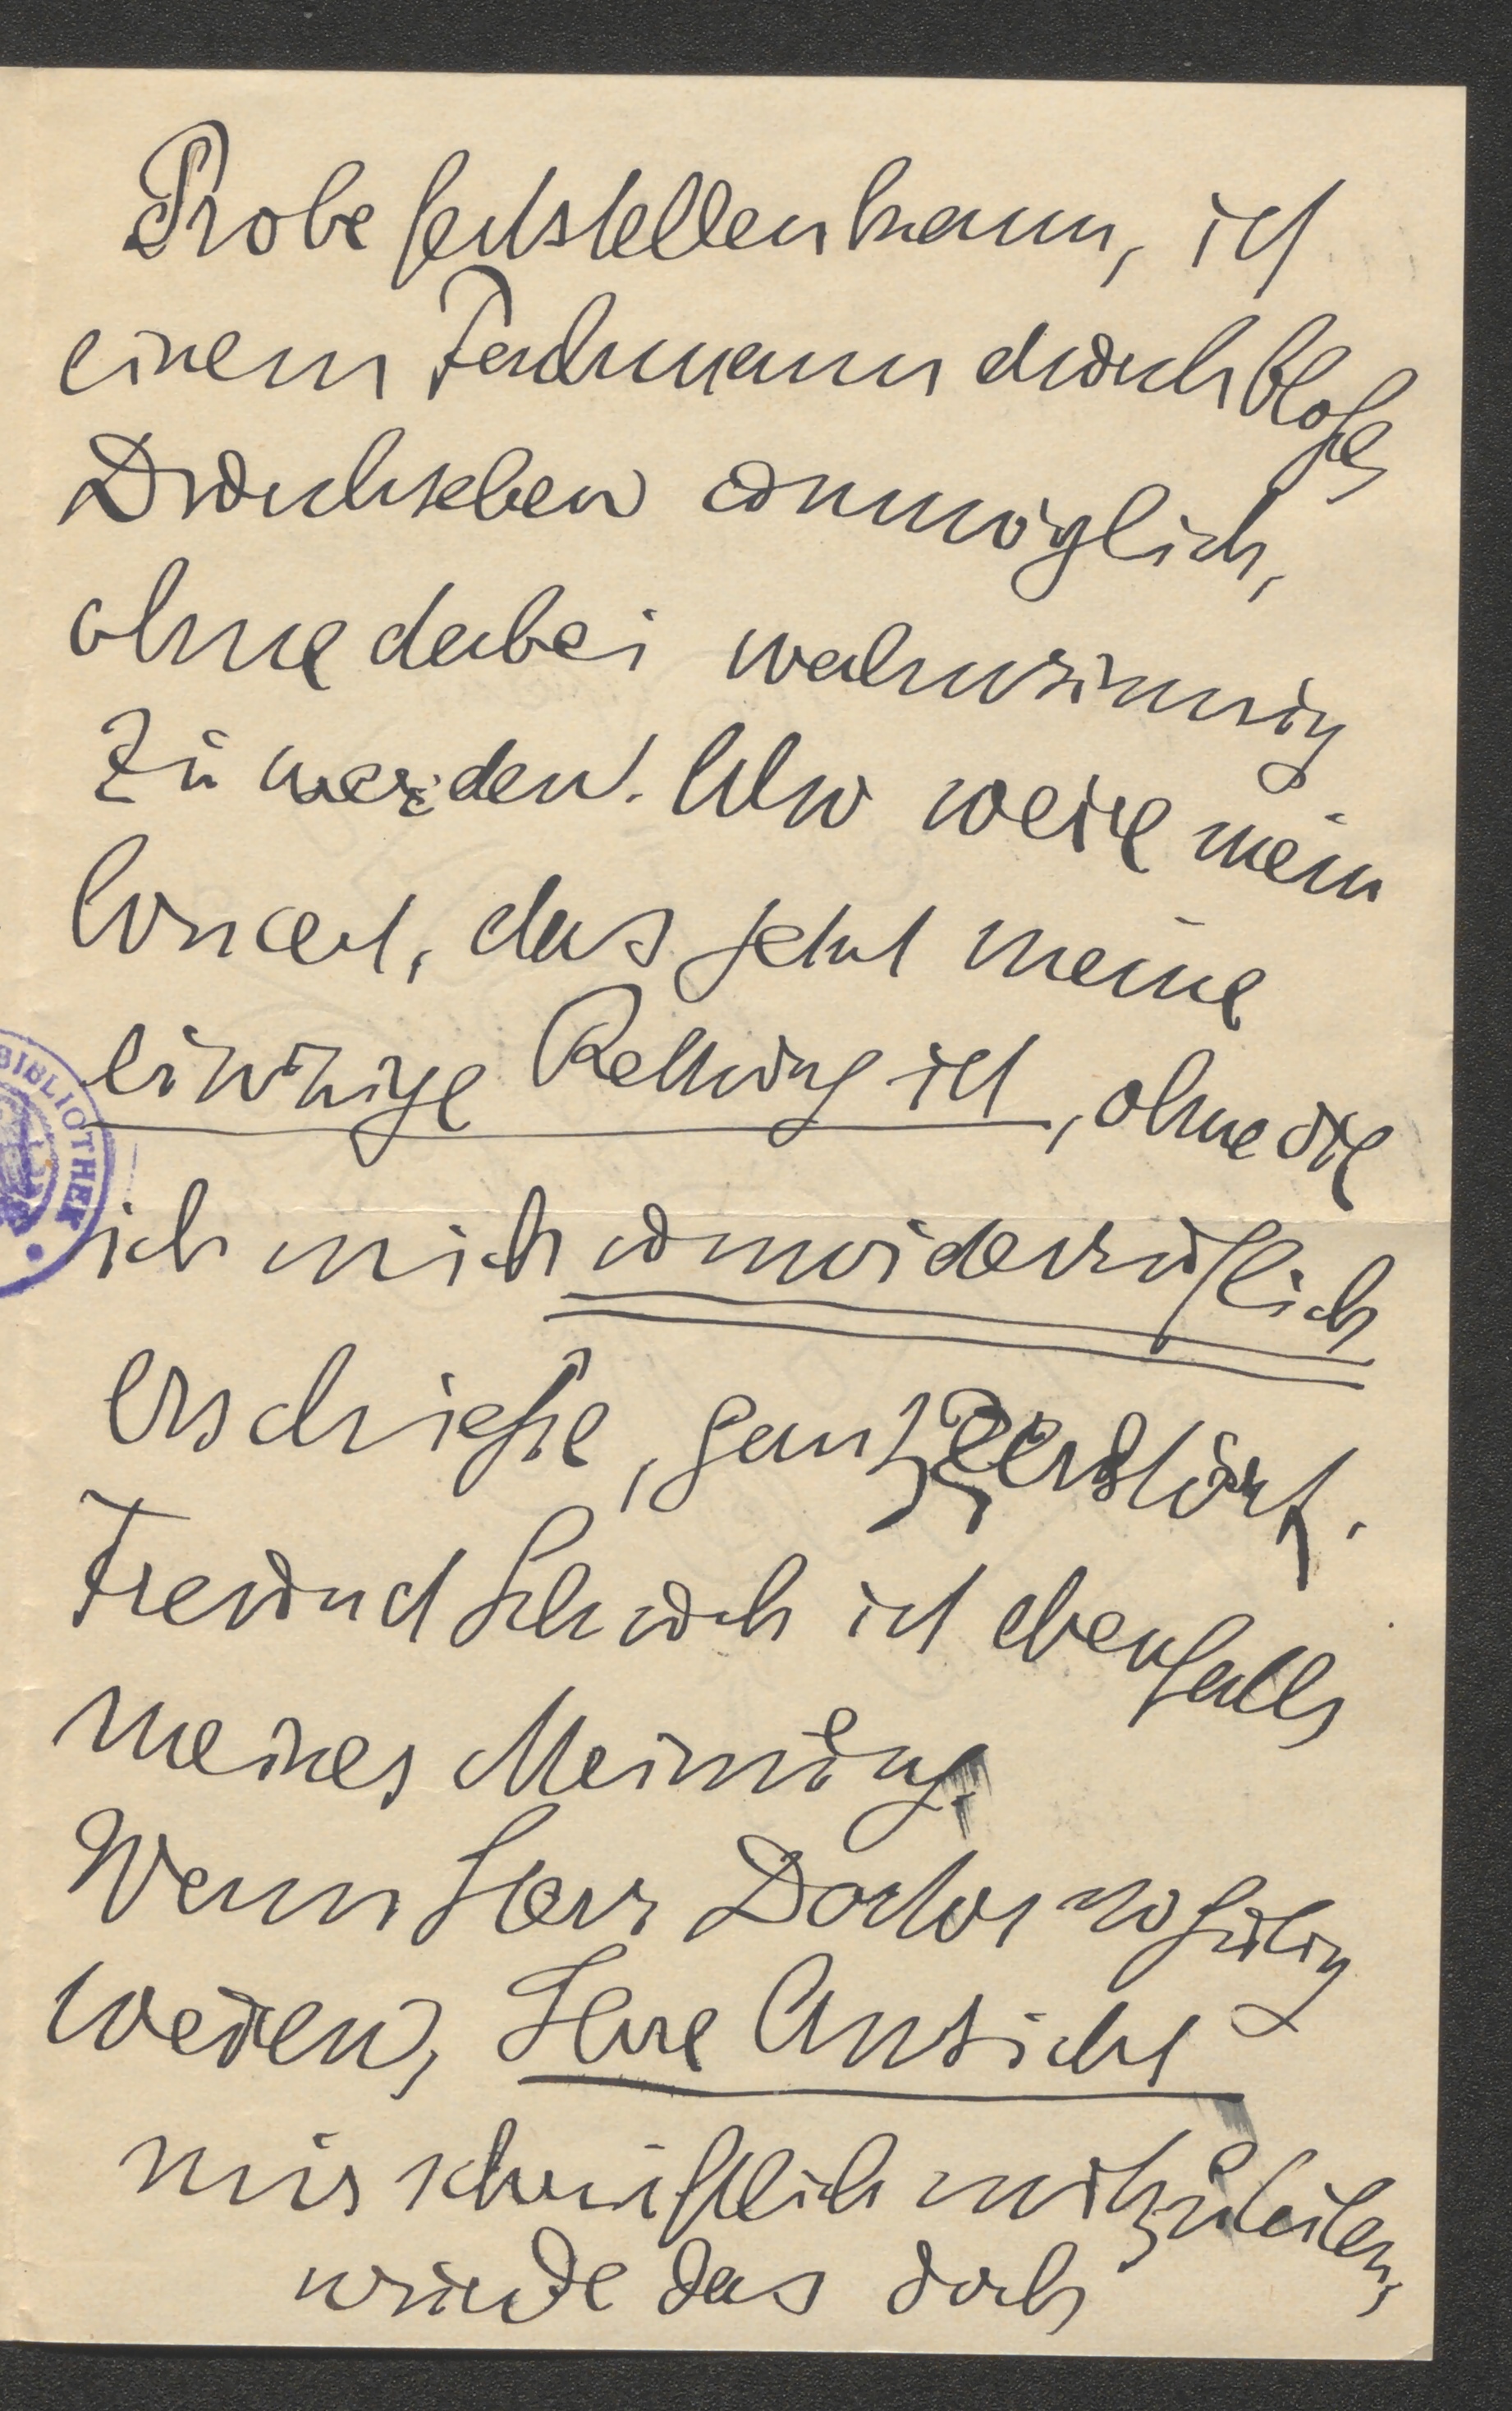 Probe feststellen kann, ist
einem Fachmann durch bloßes
Durchsehen unmöglich,
ohne dabei wahnsinnig
zu werden. Also wäre mein
Concert, das jetzt meine
einzige Rettung ist, ohne die
ich mich unwiderruflich
erschieße, ganz zerstört.
Freund Schuch ist ebenfalls
meiner Meinung.
Wenn Herr Doctor so gütig
wären, Ihre Ansicht
mir schriftlich mitzuteilen,
würde das doch
BIBLIOTHEK